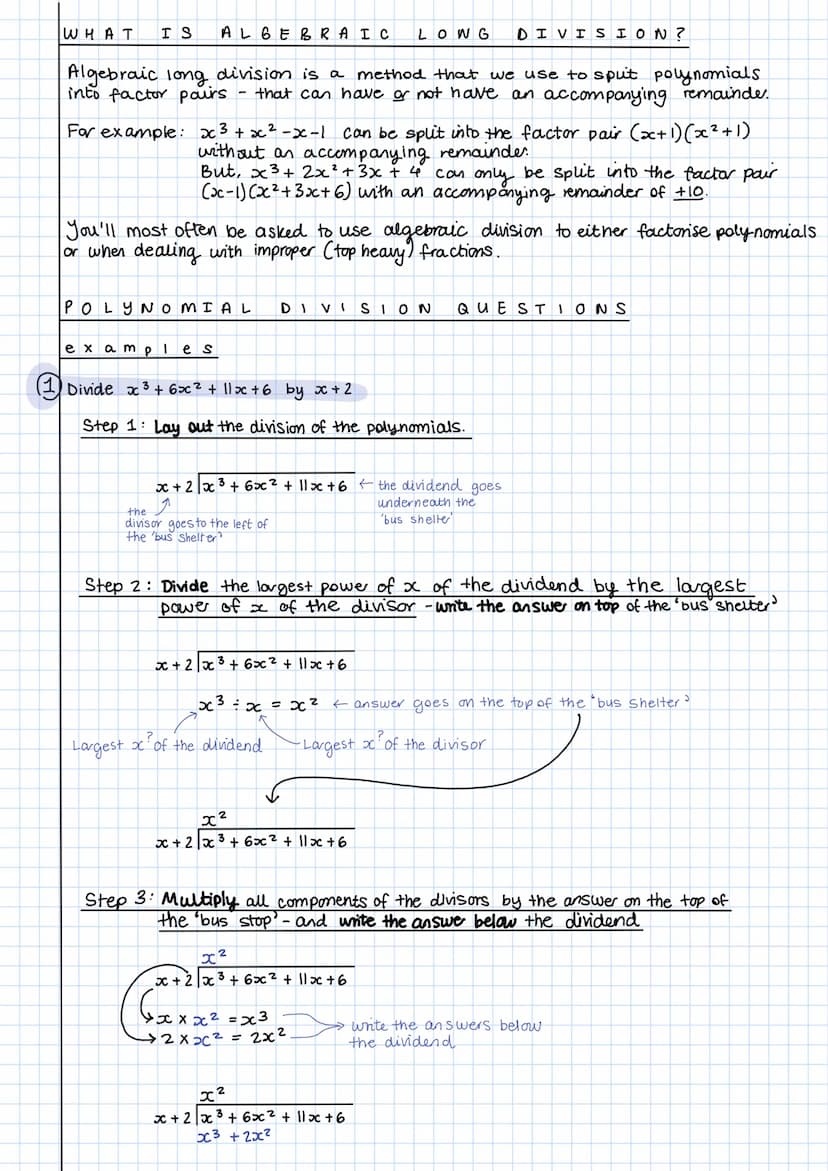 WHAT IS ALGEBRAIC LONG DIVISION?
Algebraic long division is a method that we use to split polynomials
into factor pairs - that can have or not have an accompanying remainder.
For example: x³ + x² - x - 1 can be split into the factor pair (x+1)(x²+1)
without an accompanying remainder.
But, x³ + 2x² + 3x + 4 can only be split into the factor pair
(x-1)(x²+3x+6) with an accompanying remainder of +10.
You'll most often be asked to use algebraic division to either factorise poly-nomials
or when dealing with improper (top heavy) fractions.
POLYNOMIAL DIVISION QUESTIONS
examples
① Divide x³ + 6x² + 11x + 6 by x + 2
Step 1: Lay out the division of the polynomials.
x + 2 | x³ + 6x² + 11x + 6 ← the dividend goes
underneath the
'bus shelter'
the
divisor goes to the left of
the 'bus shelter'
Step 2: Divide the largest power of x of the dividend by the largest
power of x of the divisor - write the answer on top of the 'bus shelter'
x + 2 | x³ + 6x² + 11x + 6
x³ ÷ x = x² ← answer goes on the top of the 'bus shelter'
Largest x^? of the dividend
Largest x^? of the divisor
x²
x + 2 | x³ + 6x² + 11x + 6
Step 3: Multiply all components of the divisors by the answer on the top of
the 'bus stop' - and write the answe below the dividend
x²
x + 2 | x³ + 6x² + 11x + 6
x × x² = x³
2 × x² = 2x²
write the answers below
the dividend
x²
x + 2 | x³ + 6x² + 11x + 6
x³ + 2x²